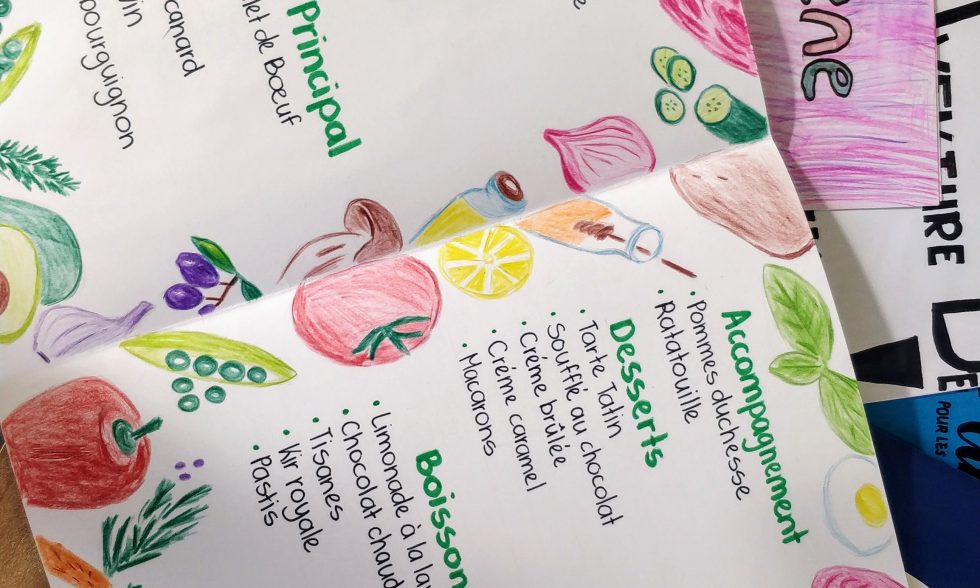 Principal
let de Boeuf
canard
vin
bourguignon
Accompagnement
• Pommes duchesse
• Ratatouille
Desserts
• Tarte Tatin
• Soufflé au chocolat
• Crème brûlée
• Crème caramel
• Macarons
Boisson
• Limonade à la la
• Chocolat chaud
• Tisanes
• Kir royale
• Pastis
ne
AVENTURE
DE
POUR LES